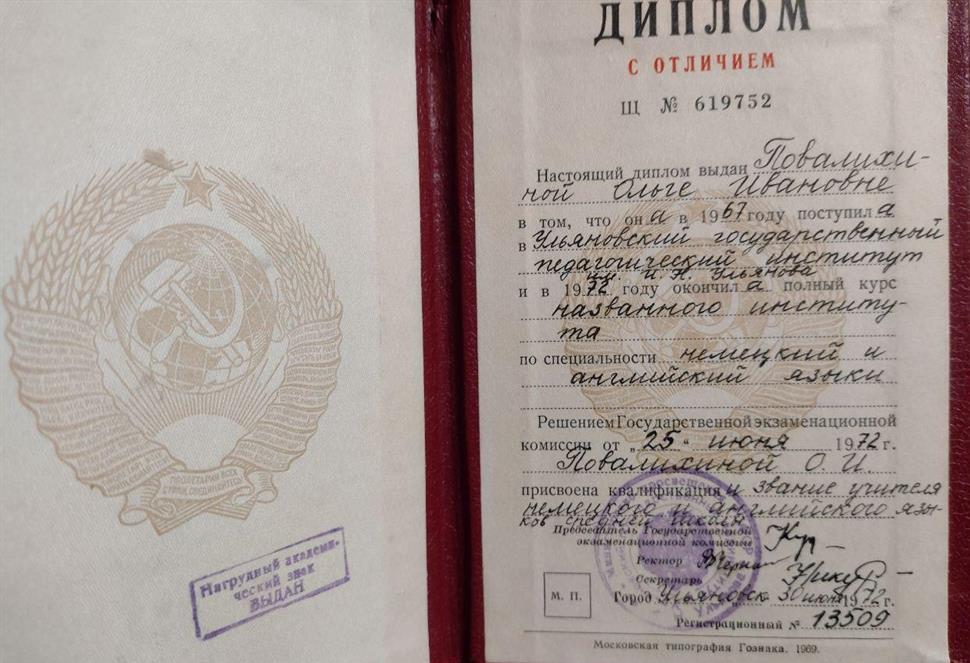 ПРОЛЕТАРИИ ВСЕХ
СТРАН, СОЕДИНЯЙТЕСЬ
Нагрудный академи-
ческий знак
ВЫДАН
ДИПЛОМ
С ОТЛИЧИЕМ
Щ № 619752
Настоящий диплом выдан Повалихи-
ной Ольге Ивановне
в том, что он а в 1967 году поступил а
в Ульяновский государственный
педагогический институт
им. И. Н. Ульянова
и в 1972 году окончил а полный курс
названного институ-
та
по специальности немецкий и
английский языки
Решением Государственной экзаменационной
комиссии от „25" июня 1972 г.
Повалихиной О. И.
присвоена квалификация и звание учителя
немецкого и английского язы-
ков средней школы
Председатель Государственной
экзаменационной комиссии
Ректор
Секретарь
М. П.
Город Ульяновск 30 июня 1972 г.
Регистрационный № 13509
Московская типография Гознака. 1969.